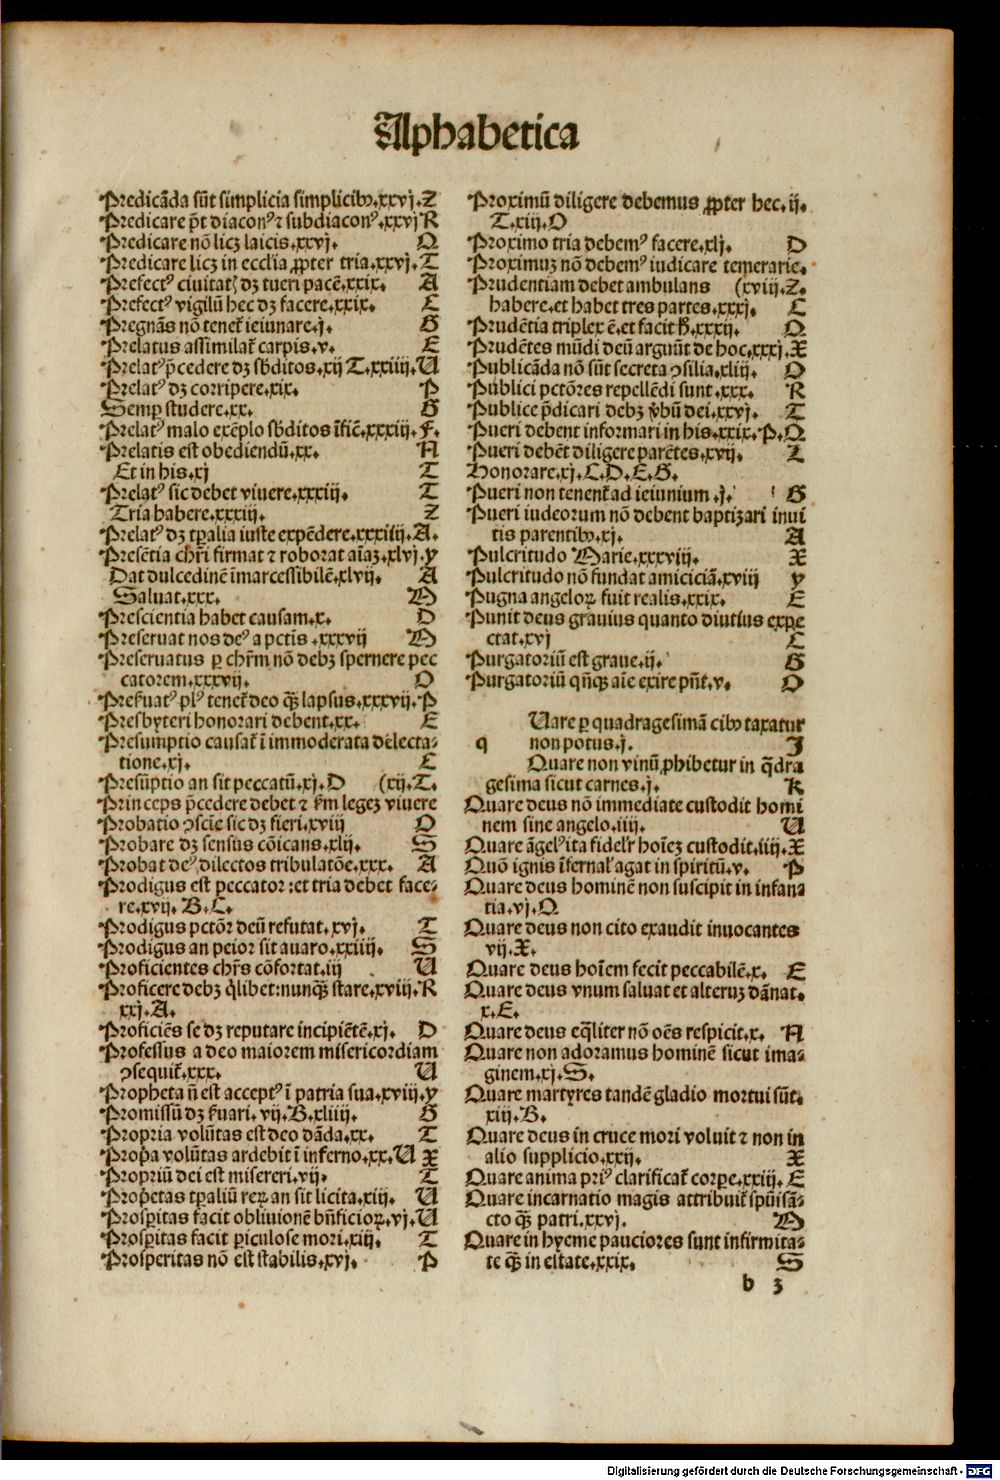 Alphabetica
Predicãda sũt simplicia simplicibꝰ.xxvj.Z
Predicare põt diaconꝰ ⁊ subdiaconꝰ.xxvj R
Predicare nõ licꝫ laicis.xxvj. Q
Predicare licꝫ in ecclia ꝓpter tria.xxvj.T
Prefectꝰ ciuitatꝭ dꝫ tueri pacē.xxix. A
Prefectꝰ vigilũ hec dꝫ facere.xxix. C
Pregnãs nõ tenet̃ ieiunare.j. G
Prelatus assimilat̃ carpis.v. E
Prelatꝰ p̃cedere dꝫ sb̃ditos.xij T.xxiiij.U
Prelatꝰ dꝫ corripere.xix. P
Semp̲ studere.xx. G
Prelatꝰ malo exēplo sb̃ditos ĩficē.xxxiij.F.
Prelatis est obediendũ.xx. N
Et in his.xj T
Prelatꝰ sic debet viuere.xxxiij. T
Tria habere.xxxiij. Z
Prelatꝰ dꝫ tp̃alia iuste expēdere.xxxiiij.A.
Presētia chr̃i firmat ⁊ roborat aĩaꝫ.xlvj.y
Dat dulcedinē ĩmarcessibilē.xlvij. A
Saluat.xxx. M
Prescientia habet causam.x. D
Preseruat nos deꝰ a pctĩs.xxxvij M
Preseruatus ꝑ chr̃m nõ debꝫ spernere pec
catorem.xxxvij. O
Prek̃uatꝰ plꝰ tenet̃ deo qꝫ̃ lapsus.xxxvij.P
Presbyteri honorari debent.xx. E
Presumptio causat̃ ĩ immoderata delecta⸗
tione.xj. C
Presũptio an sit peccatũ.xj.D (xij.T.
Princeps p̃cedere debet ⁊ k̃m legeꝫ viuere
Probatio ꝯscie sic dꝫ fieri.xviij O
Probare dꝫ sensus cõicans.xlij. S
Probat deꝰ dilectos tribulatõe.xxx. A
Prodigus est peccator:et tria debet face⸗
re.xvij. B.C.
Prodigus pctõr deũ refutat.xvj. T
Prodigus an peior sit auaro.xxiiij. S
Proficientes chr̃s cõfortat.iij U
Proficere debꝫ q̃libet:nunqꝫ̃ stare.xviij.R
xxj.A.
Proficiēs se dꝫ reputare incipiētē.xj. D
Professus a deo maiorem misericordiam
ꝯsequit̃.xxx. U
Propheta ñ est acceptꝰ ĩ patria sua.xviij.y
Promissũ dꝫ k̃uari. vij.B.xliiij. G
Propria volũtas est deo dãda.xx. T
Prop̃a volũtas ardebit ĩ inferno.xx.U X
Propriũ dei est misereri.vij. T
Prop̃etas tp̃aliũ reꝝ an sit licita.xiij. U
Prosꝑitas facit obliuionē bñficioꝝ.vj.U
Prosꝑitas facit ꝑiculose mori.xiij. T
Prosperitas nõ est stabilis.xvj. P
Proximũ diligere debemus ꝓpter hec.ij.
T.xiij.O
Proximo tria debemꝰ facere.xlj. D
Proximuꝫ nõ debemꝰ iudicare temerarie.
Prudentiam debet ambulans (xviij.Z.
habere.et habet tres partes.xxxj. C
Prudētia triplex ē.et facit h̃.xxxij. Q
Prudētes mũdi deũ arguũt de hoc.xxxj.X
Publicãda nõ sũt secreta ꝯsilia.xliij. O
Publici pctõres repellēdi sunt.xxx. R
Publice p̃dicari debꝫ v̾bũ dei.xxvj. T
Pueri debent informari in his.xxix.P.Q
Pueri debēt diligere parētes.xvij. Z
Honorare.xj.C.D.E.G.
Pueri non tenent̃ ad ieiunium.j. G
Pueri iudeorum nõ debent baptizari inui
tis parentibꝰ.xj. A
Pulcritudo Marie.xxxviij. X
Pulcritudo nõ fundat amiciciã.xviij y
Pugna angeloꝝ fuit realis.xxix. E
Punit deus grauius quanto diutius expe
ctat.xvj C
Purgatoriũ est graue.ij. G
Purgatoriũ qñqꝫ aĩe exire pñt.v. O
Uare ꝑ quadragesimã cibꝰ taxatur
q non potus.j. J
Quare non vinũ ꝓhibetur in q̃dra
gesima sicut carnes.j. K
Quare deus nõ immediate custodit homi
nem sine angelo.iiij. U
Quare ãgelꝰ ita fidelr̃ hoĩeꝫ custodit.iiij.X
Quõ ignis ĩfernal̃ agat in spiritũ.v. P
Quare deus hominē non suscipit in infana
tia.vj.Q
Quare deus non cito exaudit inuocantes
vij.X.
Quare deus hoĩem fecit peccabilē.x. E
Quare deus vnum saluat et alteruꝫ dãnat.
x.E.
Quare deus eq̃liter nõ oẽs respicit.x. N
Quare non adoramus hominē sicut ima⸗
ginem.xj.S.
Quare martyres tandē gladio mortui sũt.
xiij.B.
Quare deus in cruce mori voluit ⁊ non in
alio supplicio.xxij. X
Quare anima priꝰ clarificat̃ corꝑe.xxiij.E
Quare incarnatio magis attribuit̃ spũisã⸗
cto qꝫ̃ patri.xxvj. M
Quare in hyeme pauciores sunt infirmita⸗
te qꝫ̃ in estate.xxix. S
b 3
Digitalisierung gefördert durch die Deutsche Forschungsgemeinschaft - DFG